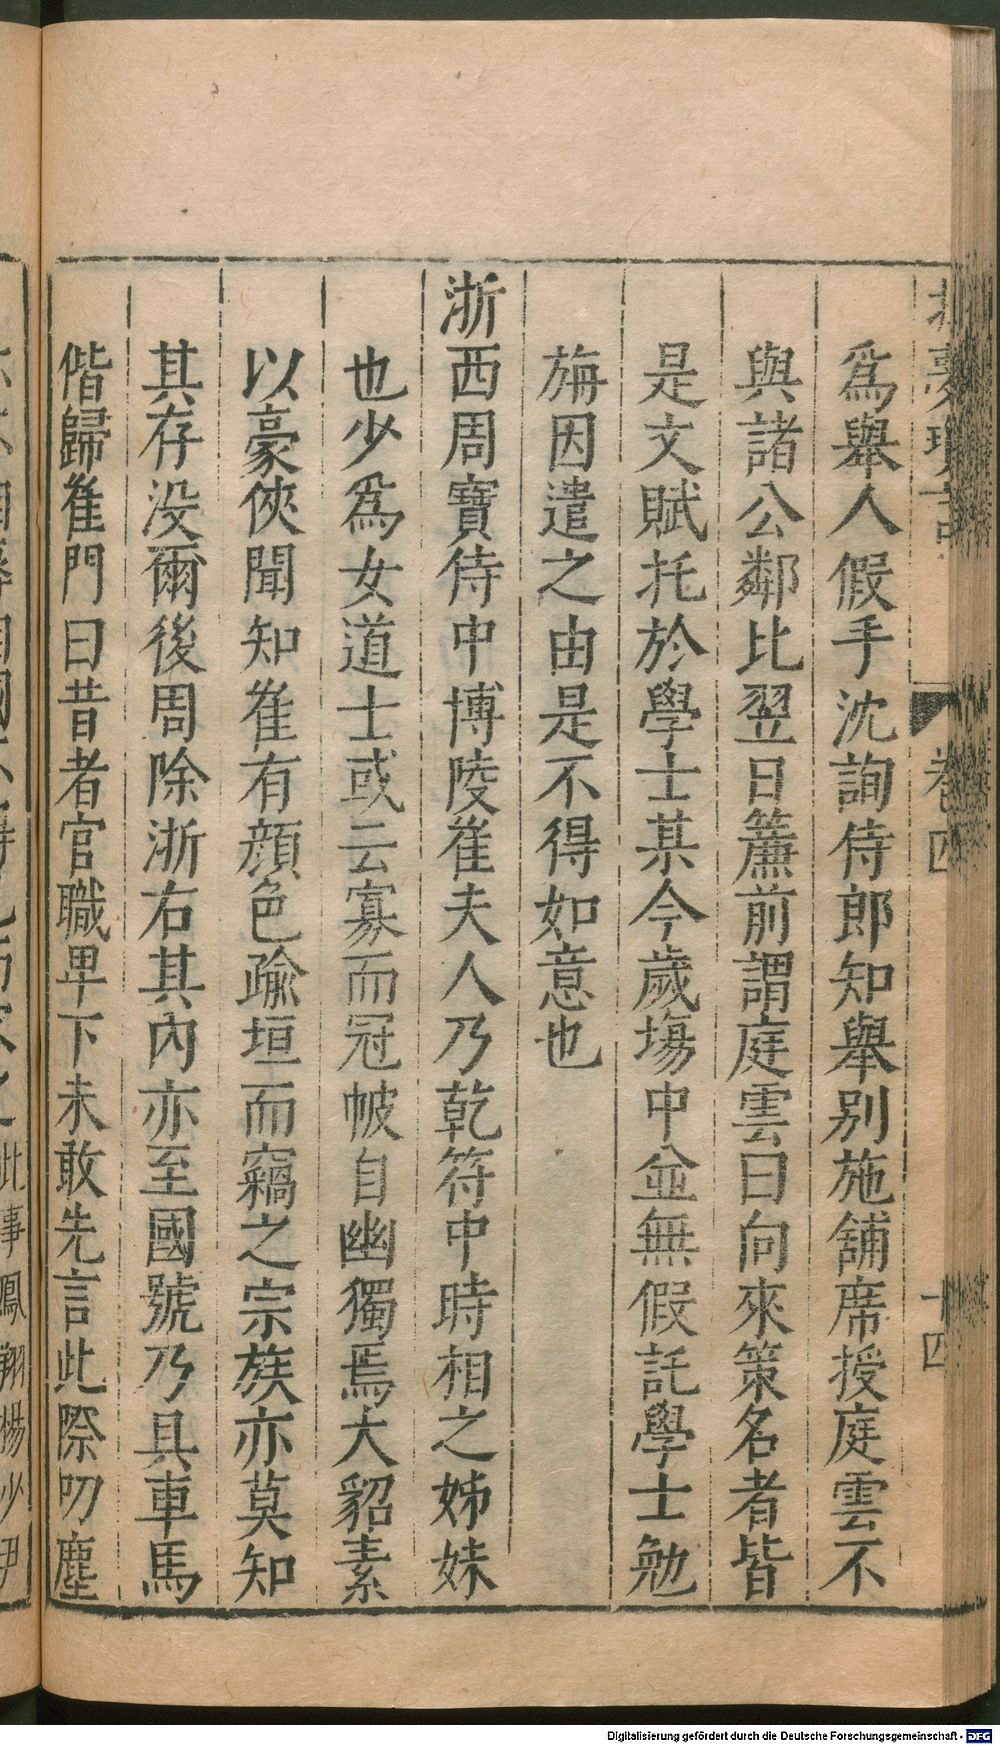 爲舉人假手沈詢侍郎知舉別施舖席授庭雲不
與諸公鄰比翌日簾前謂庭雲曰向來策名者皆
是文賦托於學士某今歲塲中並無假託學士勉
旃因遣之由是不得如意也
浙西周寶侍中博陵崔夫人乃乾符中時相之姊妹
也少爲女道士或云寡而冠帔自幽獨焉大貂素
以豪俠聞知崔有顔色踰垣而竊之宗族亦莫知
其存没爾後周除浙右其內亦至國號乃具車馬
偕歸崔門曰昔者官職卑下未敢先言此際叨塵
卷四
十四
Digitalisierung gefördert durch die Deutsche Forschungsgemeinschaft - DFG